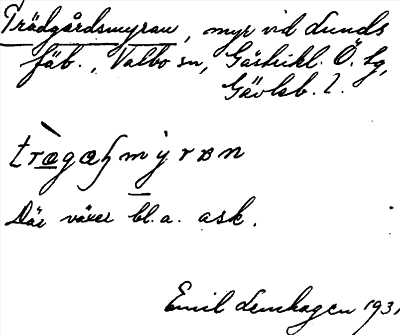 Trädgårdsmyran, myr vid Lunds
fäb., Valbo sn, Gästrikl. Ö. tg,
Gävleb. l.
Där växer bl.a. ask.
Emil Lenhagen 1931